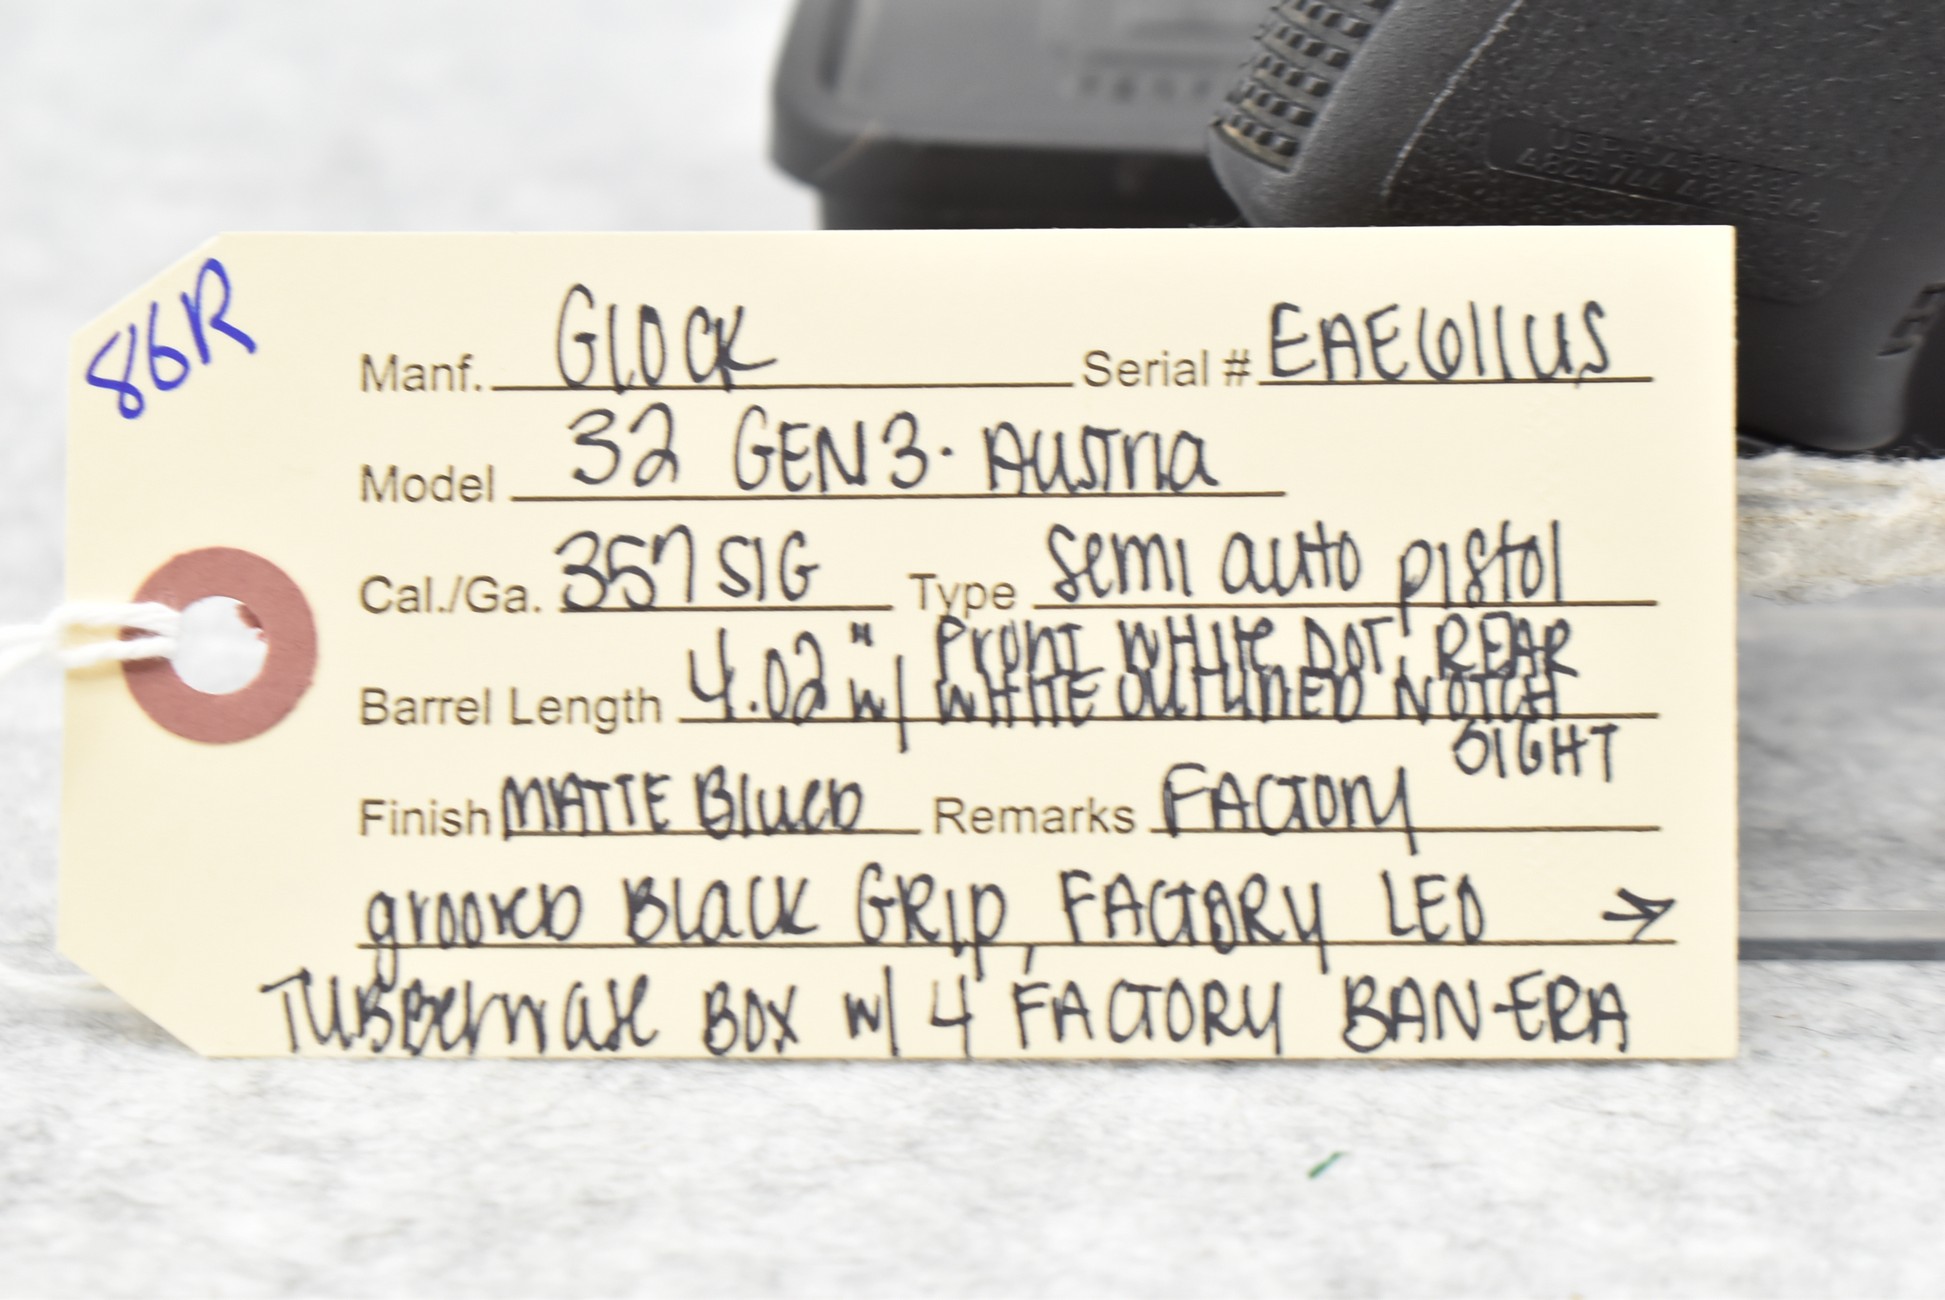 86R
Manf. Glock Serial # EAE611US
Model 32 GEN 3. Austria
Cal./Ga. 357 SIG Type semi auto pistol
Barrel Length 4.02" w/ FRONT WHITE DOT, REAR
WHITE OUTLINED NOTCH
SIGHT
Finish MATTE Blued Remarks FACTORY
grooved Black GRIP, FACTORY LEO →
BOX w/ 4 FACTORY BAN-ERA